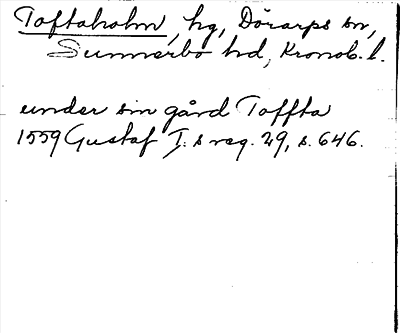 Toftaholm, hg, Dörarps sn,
Sunnerbo hd, Kronob. l.
under sin gård Toffta
1559 Gustaf I:s reg. 29, s. 646.